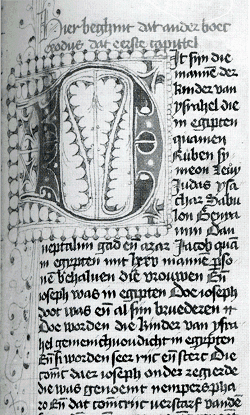 Hier beghint dat ander boec
exodus dat eerste capittel
It sijn die
manne der
kinder van
ysrahel die
in egipten
quamen
Ruben sy
meon Leuy
Judas ysa
char Zabu
lon Benia
min Dan
neptalim gad en azar Jacob quā
in egipten mit lxxv manne perso
nē behaluen die vrouwen Eñ
ioseph was in egipten Doe ioseph
doot was eñ al sijn bruederen ⁊
Doe worden die kinder van ysra
hel gemenichuoudicht in egipten
Eñ worden seer rijc eñ sterc Die
comt daer ioseph onder regierde
die was genoemt nempers pha
ro Eñ dat comt verstarf vande